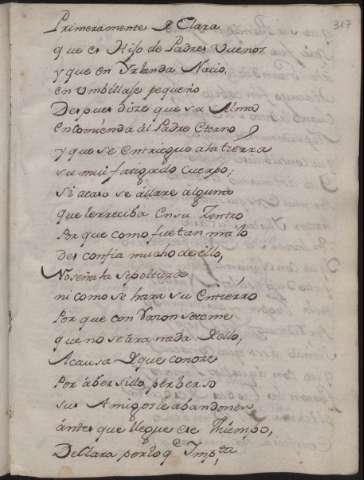 317
Primeramente Declara
que es Hijo de Padres buenos
y que en Yrlanda Nacio,
en Un billaje pequeño
Despues dize que su Alma
encomienda al Padre Eterno
y que se entregue a la tierra
su mui fatigado cuerpo;
Si acaso se állare alguno
que le rreciba en su Zentro
Porque como fue tan malo
desconfia mucho de ello,
No señala sepoltura
ni como se hara su Entierro
Porque con Razon se teme
que no se hara nada dello,
A causa De que conoze
Por áber sido perberso
sus Amigos le abandonen
ántes que llegue ese thiempo,
Declara por lo q. Impta